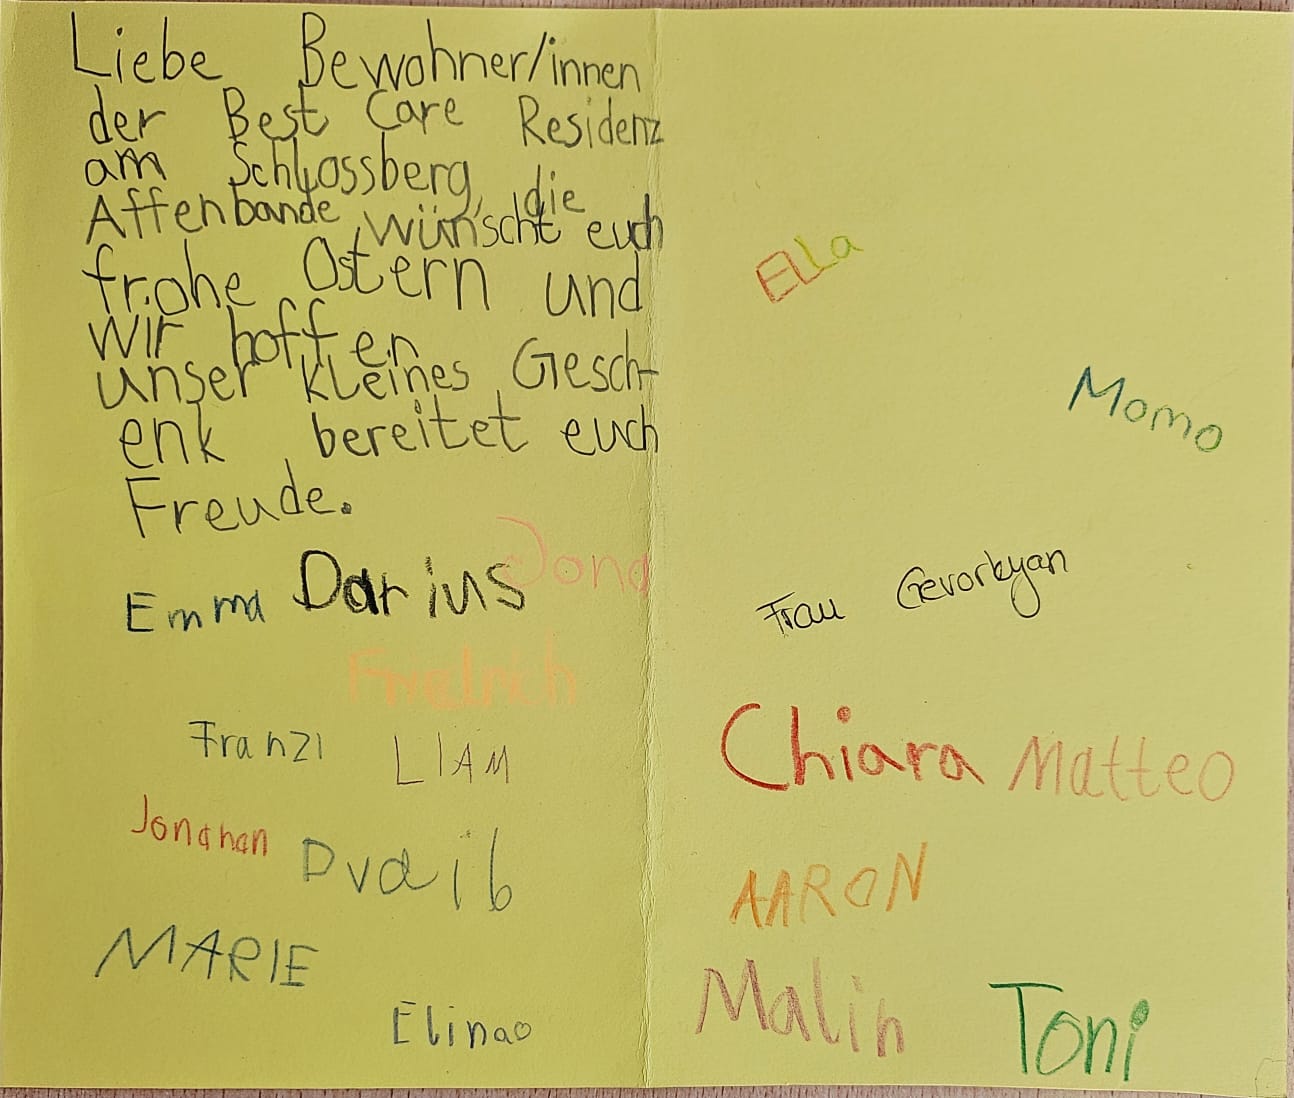 Liebe Bewohner/innen
der Best Care Residenz
am Schlossberg, die
Affenbande wünscht euch
frohe Ostern und
wir hoffen
unser kleines Gesch-
enk bereitet euch
Freude.
Emma Darius Jona
Friedrich
Franzi LIAM
Jonahan Dvaib
MARIE
Elinao
Ella
Momo
Frau Gevorkyan
Chiara Matteo
AARON
Malin Toni